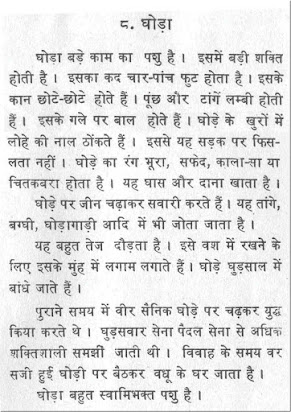 ८. घोड़ा
घोड़ा बड़े काम का पशु है । इसमें बड़ी शक्ति
होती है । इसका कद चार-पांच फुट होता है । इसके
कान छोटे-छोटे होते हैं । पूंछ और टांगें लम्बी होती
हैं । इसके गले पर बाल होते हैं । घोड़े के खुरों में
लोहे की नाल ठोंकते हैं । इससे यह सड़क पर फिस-
लता नहीं । घोड़े का रंग भूरा, सफेद, काला-सा या
चितकबरा होता है । यह घास और दाना खाता है ।
घोड़े पर जीन चढ़ाकर सवारी करते हैं । यह तांगे,
बग्घी, घोड़ागाड़ी आदि में भी जोता जाता है ।
यह बहुत तेज दौड़ता है । इसे वश में रखने के
लिए इसके मुंह में लगाम लगाते हैं । घोड़े घुड़साल में
बांधे जाते हैं ।
पुराने समय में वीर सैनिक घोड़े पर चढ़कर युद्ध
किया करते थे । घुड़सवार सेना पैदल सेना से अधिक
शक्तिशाली समझी जाती थी । विवाह के समय वर
सजी हुई घोड़ी पर बैठकर वधू के घर जाता है ।
घोड़ा बहुत स्वामिभक्त पशु है ।